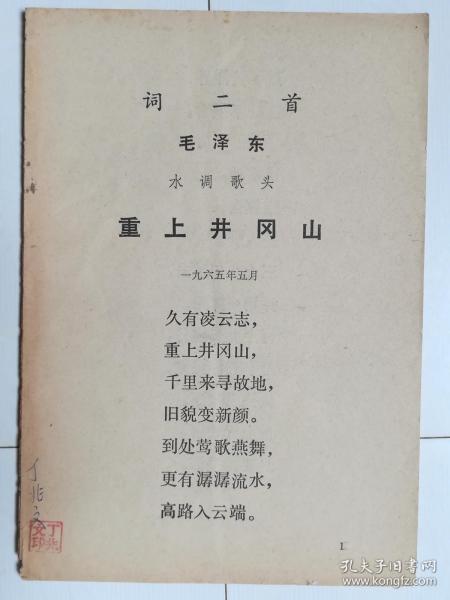 词二首
毛泽东
水调歌头
重上井冈山
一九六五年五月
久有凌云志，
重上井冈山，
千里来寻故地，
旧貌变新颜。
到处莺歌燕舞，
更有潺潺流水，
高路入云端。
1
孔夫子旧书网
www.kongfz.com